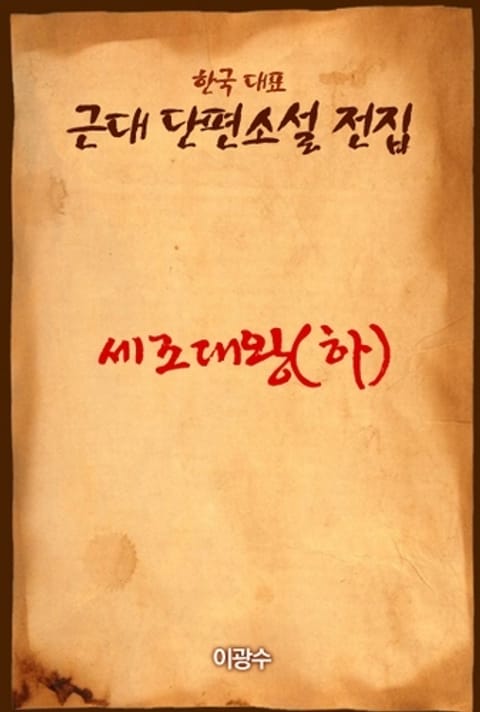 한국 대표
근대 단편소설 전집
세조대왕(하)
이광수